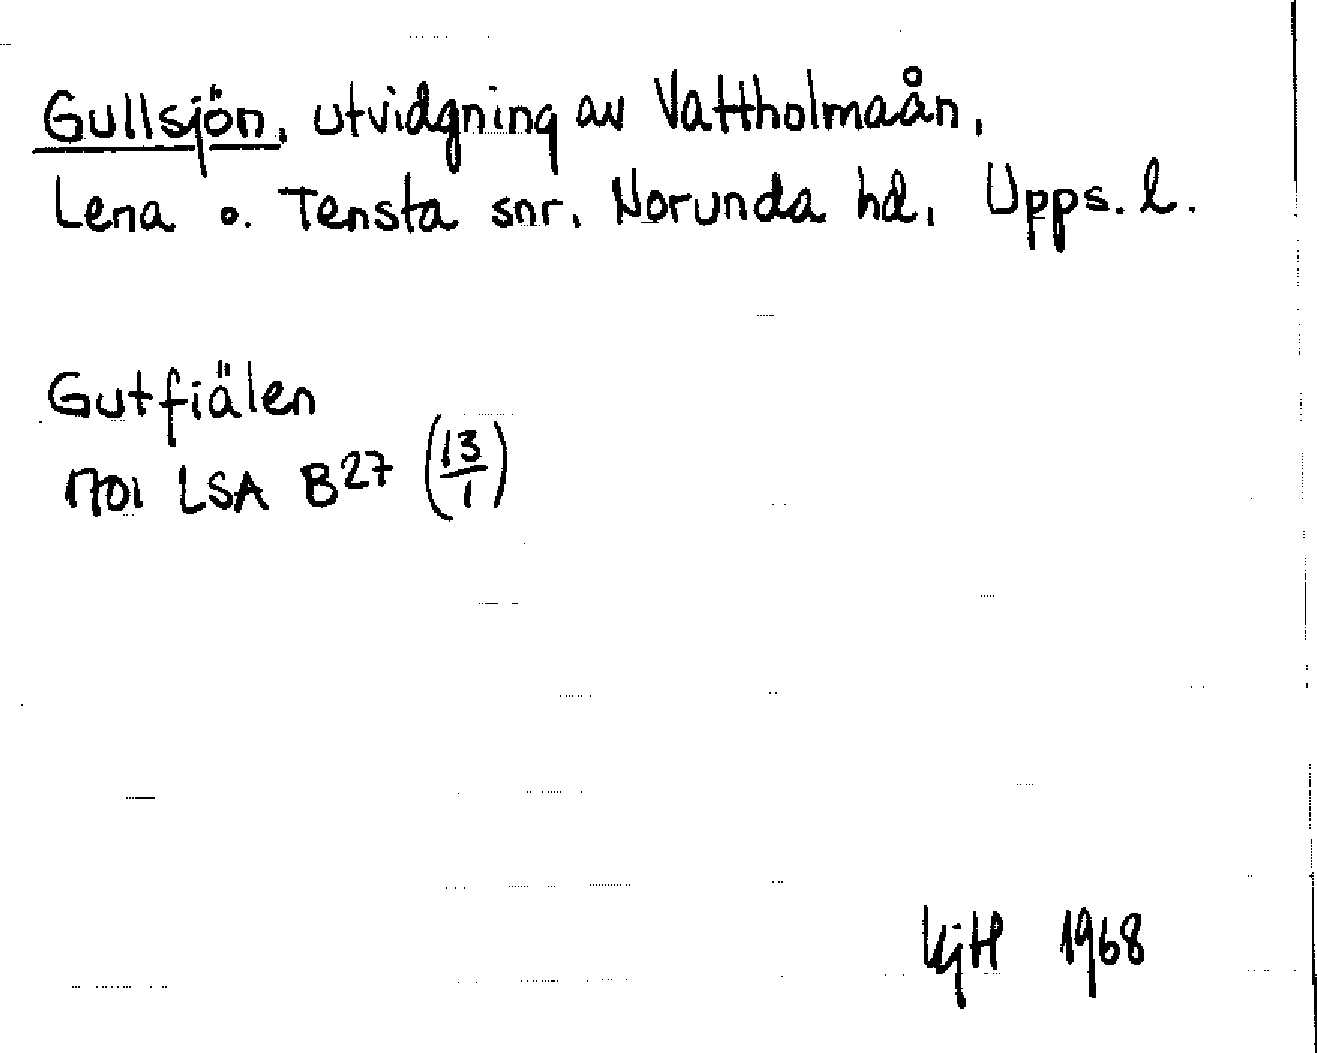 Gullsjön, utvidgning av Vattholmaån,
Lena o. Tensta snr, Norunda hd, Upps. l.
Gutfiälen
1701 LSA B27 (13/1)
KjH 1968